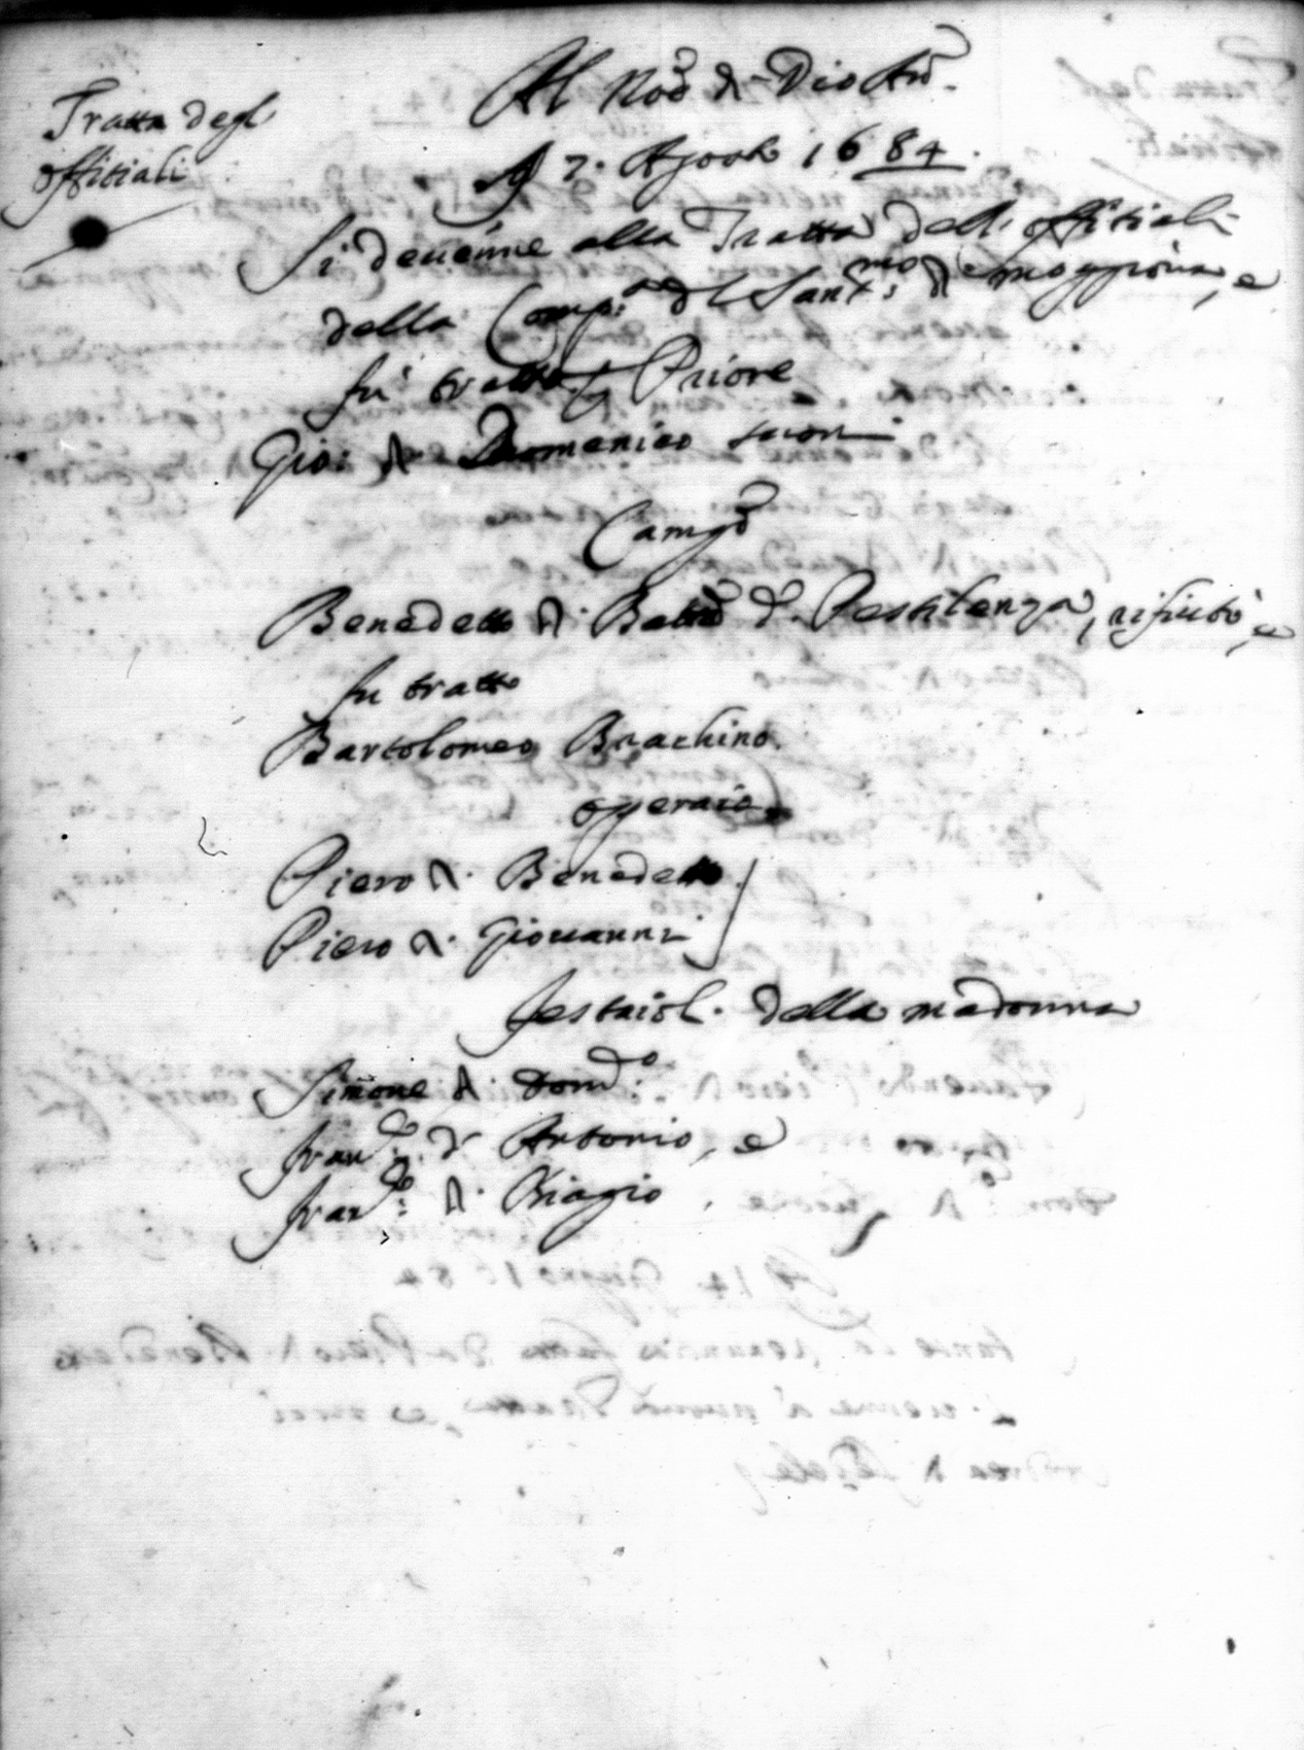 Tratta degl'
offitiali
Al Nõe di Dio Am̃.
A 7. Agosto 1684.
Si deuenne alla Tratta delli offitiali
della Comp.a del Sant.mo di Moggiona, e
fù tratto p Priore
Gio: di Domenico
Camgõ
Benedetto di Battã d. Pestilenza, rifiutò, e
fu tratto
Bartolomeo Brachino.
operaio
Piero di Benedetto
Piero di Giouanni
festaiol. della madonna
Simone di Dom.o:
Fran.co: di Antonio, e
Fran.co: di Biagio